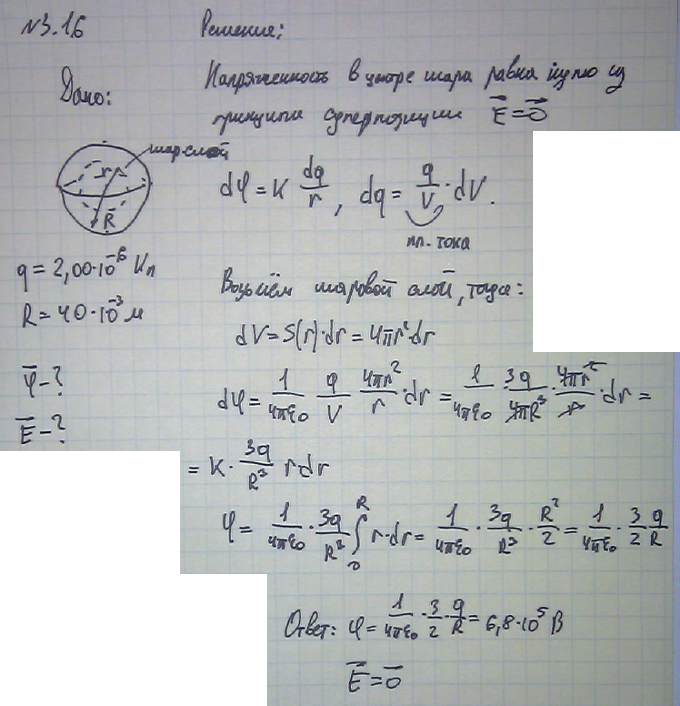 №3.16
Решение:
Дано:
Напряженность в центре шара равна нулю из
принципа суперпозиции E⃗=0⃗
шар.слой
r
R
dφ = K dq/r, dq = q/V · dV.
пл. тока
q = 2,00·10⁻⁶ Кл
R = 40·10⁻³ м
φ - ?
E - ?
Возьмём шаровой слой, тогда:
dV = S(r)·dr = 4πr²·dr
dφ = 1/4πε₀ q/V 4πr²/r · dr = 1/4πε₀ 3q/4πR³ · 4πr²/r · dr =
= K · 3q/R³ r dr
φ = 1/4πε₀ · 3q/R³ ∫₀ᴿ r·dr = 1/4πε₀ · 3q/R³ · R²/2 = 1/4πε₀ · 3/2 q/R
Ответ: φ = 1/4πε₀ · 3/2 · q/R = 6,8·10⁵ В
E⃗=0⃗